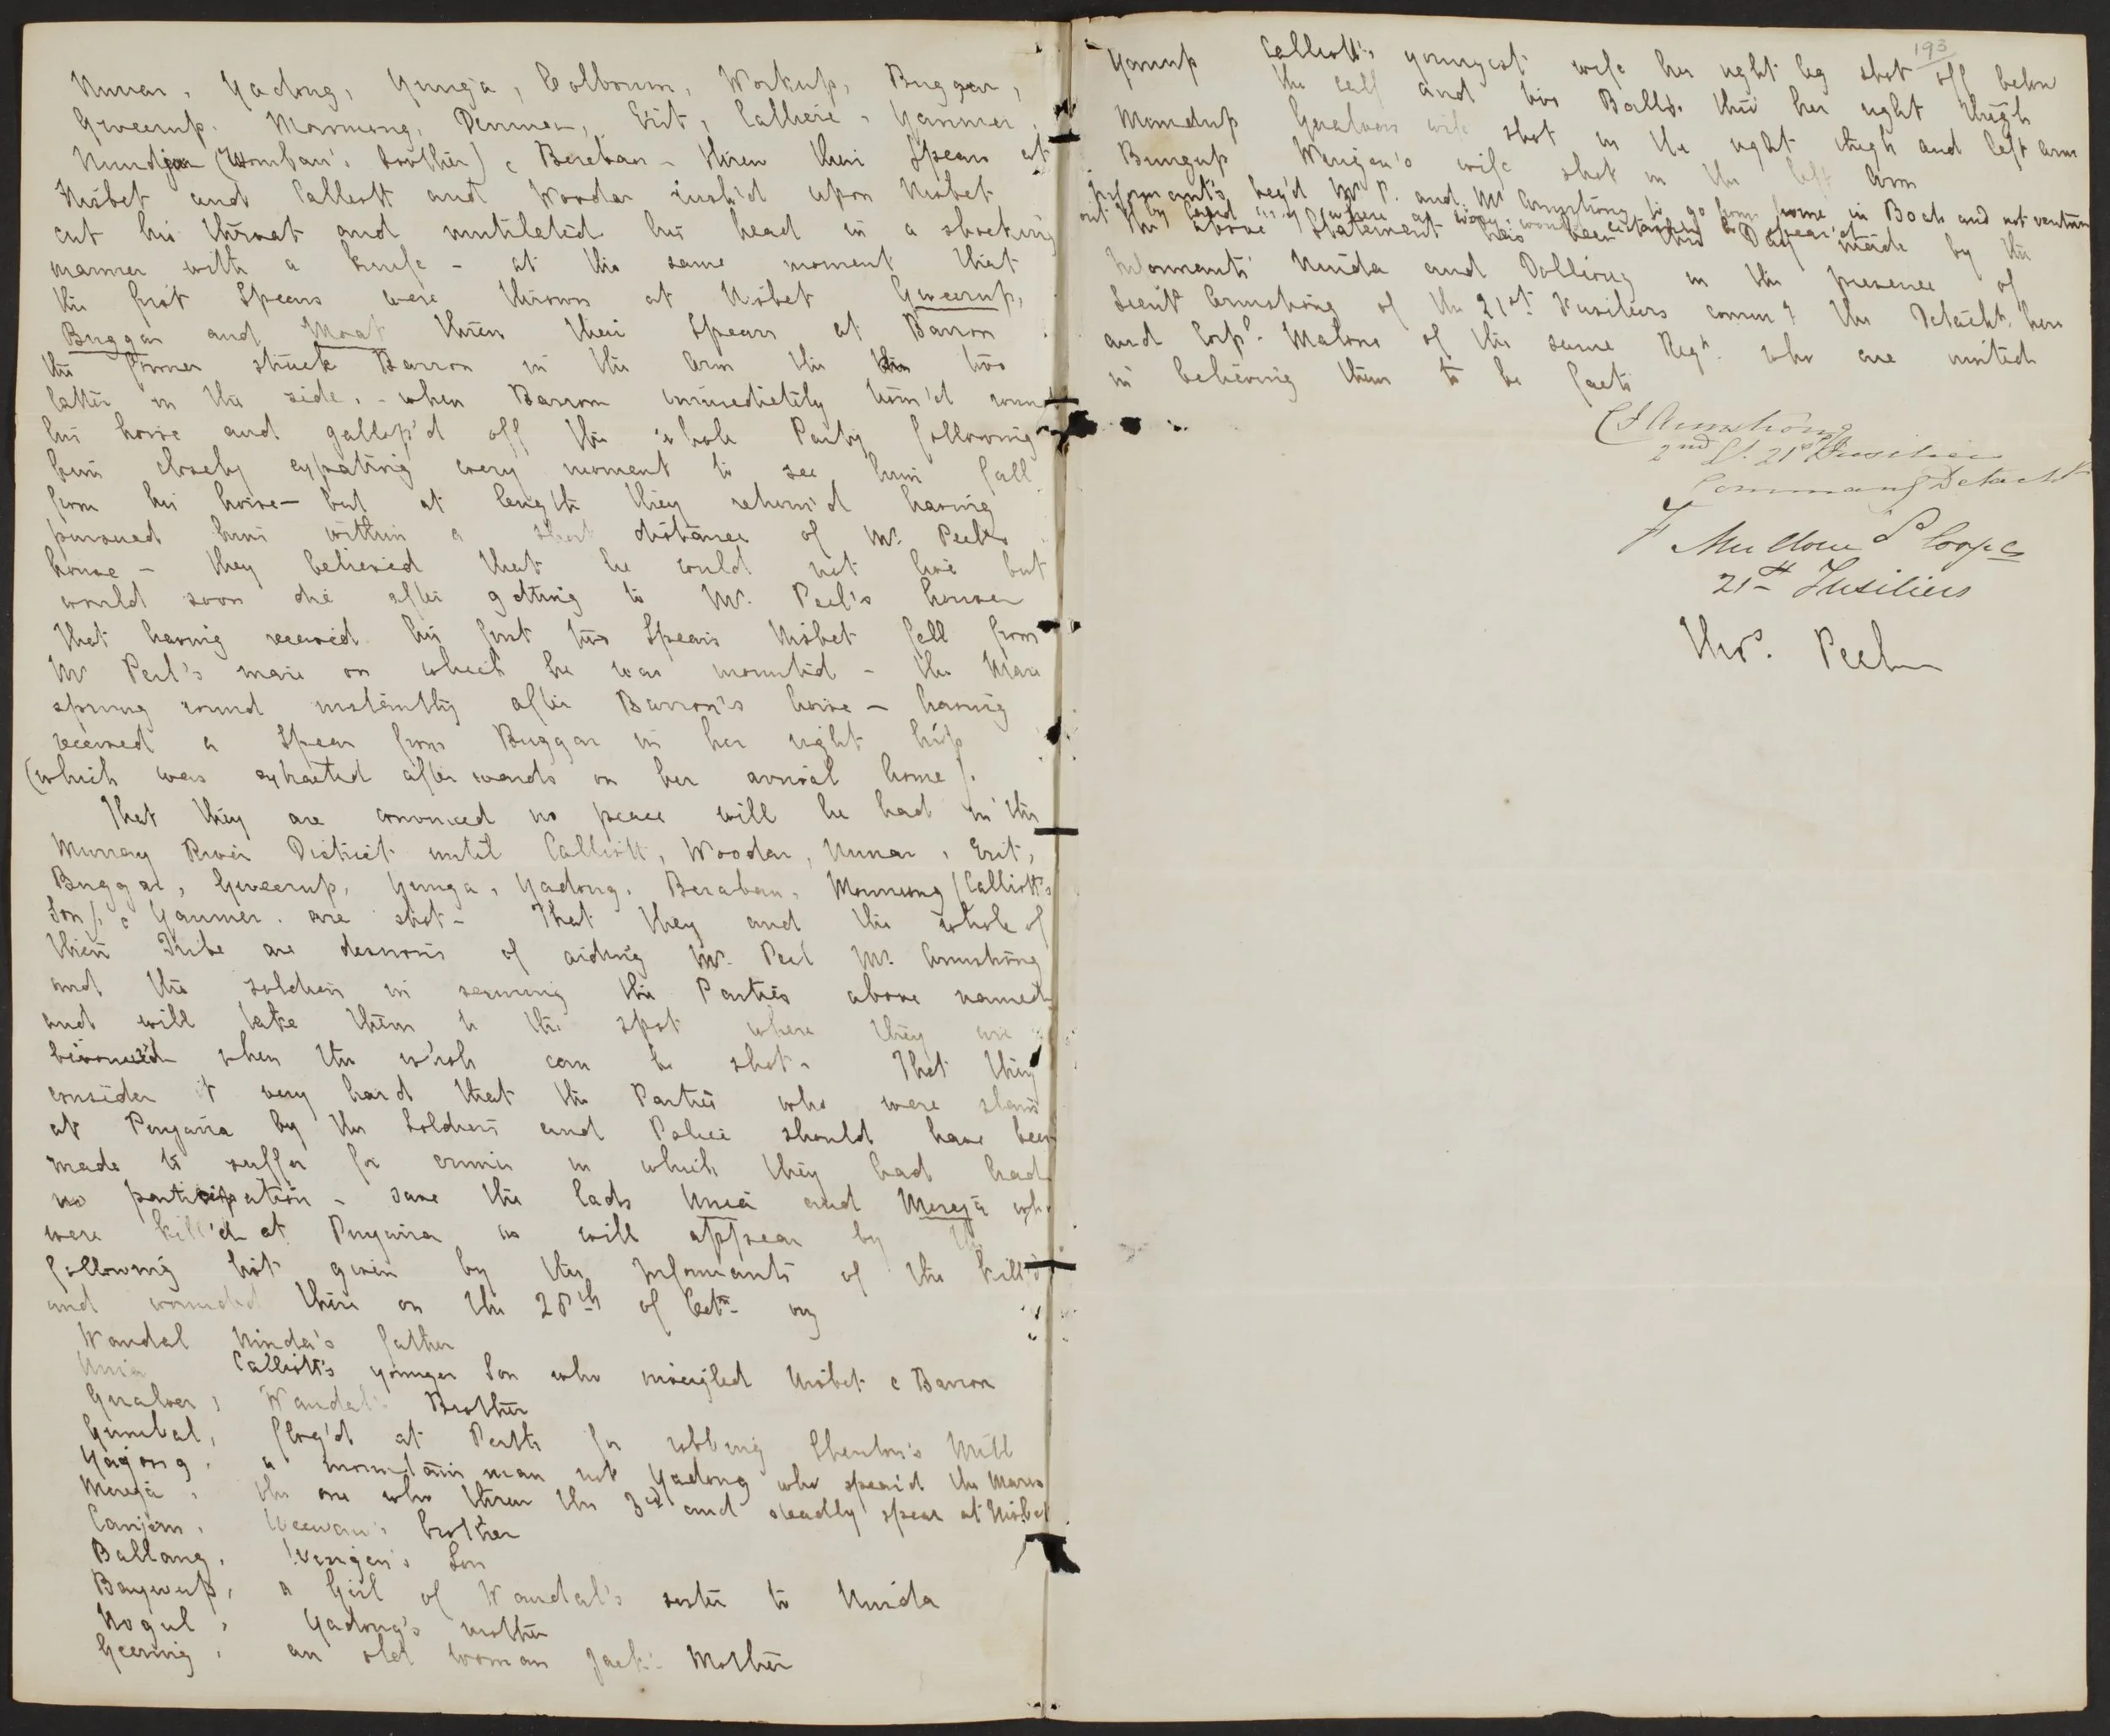 Nunar, Yadong, Yunga, Colbourn, Workup, Buggar,
Gweerup. Monmong, Denmar, Erit, Calhere, Yanmer,
Nundjan (Womban's brother) & Bereban - threw their Spears at
Nisbet and Calliott and Woodar rush'd upon Nisbet
cut his throat and mutilated his head in a shocking
manner with a knife - at the same moment that
the first Spears were thrown at Nisbet Gweerup,
Buggar and Moat threw their Spears at Barron
the former struck Barron in the arm the two
latter in the side. - when Barron immediately turn'd round
his horse and gallop'd off the whole Party following
him closely expecting every moment to see him fall
from his horse - but at length they return'd having
pursued him within a short distance of Mr. Peel's
house - they believed that he could not live but
would soon die after getting to Mr. Peel's house
That having received his first two Spears Nisbet fell from
Mr Peel's mare on which he was mounted - the Mare
sprung round instantly after Barron's horse - having
received a Spear from Buggar in her right hip
(which was extracted afterwards on her arrival home).
That they are convinced no peace will be had in the
Murray River District until Calliott, Woodar, Nunar, Erit,
Buggar, Gweerup, Yunga, Yadong, Beraban, Monmong (Calliott's
Son) & Yanmer. are shot - That they and the whole of
their Tribe are desirous of aiding Mr. Peel Mr. Armstrong
and the soldiers in securing the Parties above named
and will take them to the spot where they are
bivouac'd when the whole can be shot. That they
consider it very hard that the Parties who were slain
at Pinjarra by the Soldiers and Police should have been
made to suffer for crimes in which they had had
no participation - save the lads Unia and Mereja who
were kill'd at Pinjarra as will appear by the
following list given by the Informants of the kill'd
and wounded there on the 28th of Octr. viz
Wandal Ninda's father
Unia Calliott's younger Son who inveigled Nisbet & Barron
Gualver, Wandal's Brother
Gumbal, flog'd at Perth for robbing Shenton's Mill
Yagong, a mountain man not Yadong who spear'd the Mares
Mereja, the one who threw the 3rd and deadly spear at Nisbet
Canjem, Weewan's brother
Ballang, Wengen's Son
Baywup, a Girl of Wandal's sister to Ninda
Nogul, Yadong's mother
Geering, an old woman Jack's Mother
193
Yornup Calliott's youngest wife her right leg shot off below
the calf and two Balls thro' her right thigh
Mamdup Gualvers wife shot in the right thigh and left arm
Bungup Wengen's wife shot in the left Arm
Informants beg'd Mr P. and Mr Armstrong to go from home in Boats and not venture
out by land as
The above Statement has been this Day made by the
Informants Ninda and Dollerug in the presence of
Lieut Armstrong of the 21st Fusiliers comm'g the Detacht. here
and Corpl. Malone of the same Regt. who are united
in believing them to be facts
C F Armstrong
2nd Lt. 21st Fusiliers
Command'g Detacht
F Mullone Corpl
21st Fusiliers
Thos. Peel